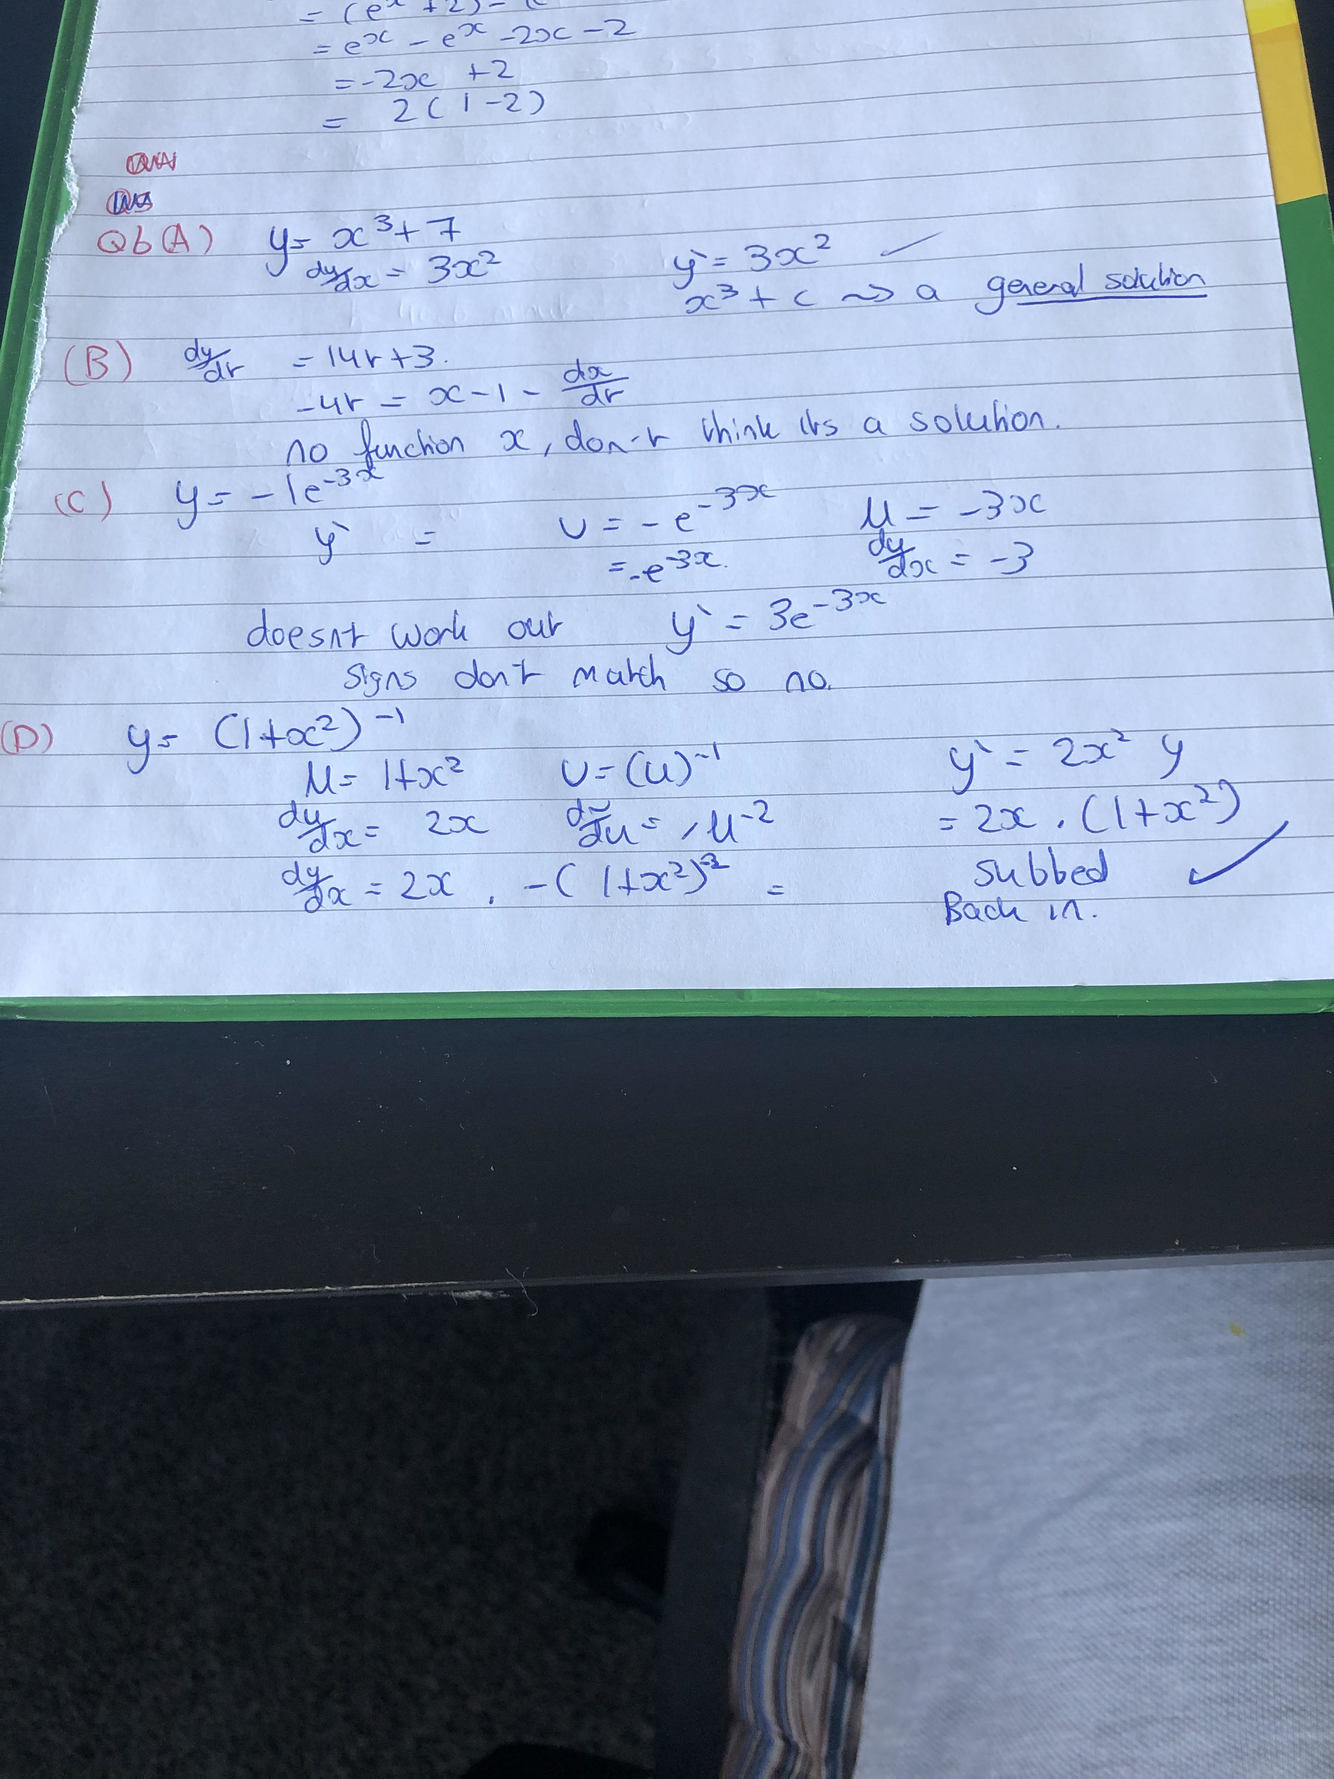 = (eˣ + 2) -
= eˣ - eˣ - 2x - 2
= -2x + 2
= 2(1-2)
Q6(A) y = x³ + 7
dy/dx = 3x²
y` = 3x² ✓
x³ + c ~> a general solution
(B) dy/dr = 14r + 3.
-4r = x - 1 - dx/dr
no function x, don't think its a solution.
(C) y = -1e⁻³ˣ
y` = U = -e⁻³ˣ μ = -3x
= -e⁻³ˣ. dy/dx = -3
doesnt work out y` = 3e⁻³ˣ
signs don't match so no.
(D) y = (1+x²)⁻¹
μ = 1+x² U = (u)⁻¹ y` = 2x² y
dy/dx = 2x du = -μ⁻² = 2x . (1+x²)
dy/dx = 2x . -(1+x²)⁻² = subbed ✓
Back in.